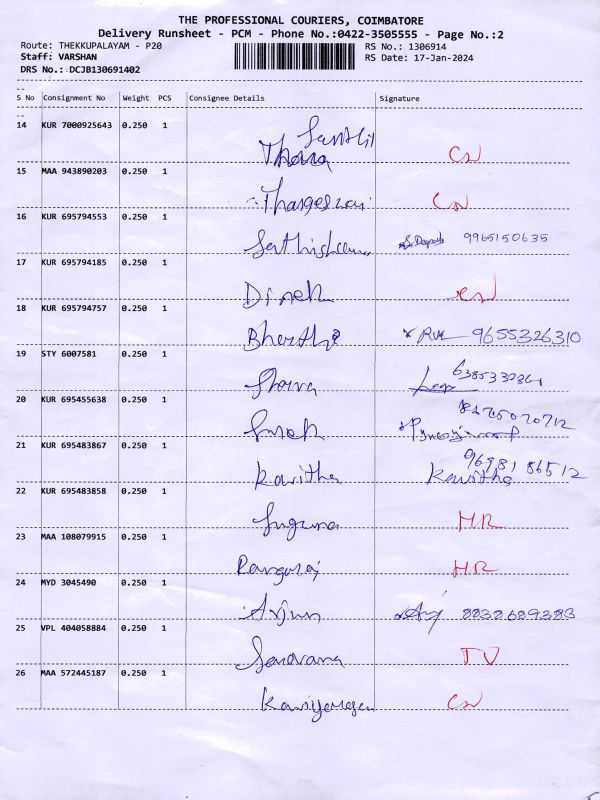 THE PROFESSIONAL COURIERS, COIMBATORE
Delivery Runsheet - PCM - Phone No.:0422-3505555 - Page No.:2
Route: THEKKUPALAYAM - P20
RS No.: 1306914
Staff: VARSHAN
RS Date: 17-Jan-2024
DRS No.: DCJB130691402
S No Consignment No Weight PCS Consignee Details Signature
14 KUR 7000925643 0.250 1
CN
15 MAA 943890203 0.250 1
CN
16 KUR 695794553 0.250 1
9965150635
17 KUR 695794185 0.250 1
Dinesh
18 KUR 695794757 0.250 1
9655326310
19 STY 6007581 0.250 1
20 KUR 695455638 0.250 1
Suresh
21 KUR 695483867 0.250 1
Kavitha Kavitha
22 KUR 695483858 0.250 1
Suguna HR
23 MAA 108079915 0.250 1
Rangaraj HR
24 MYD 3045490 0.250 1
Arjun
25 VPL 404058884 0.250 1
Saravana TV
26 MAA 572445187 0.250 1
CN